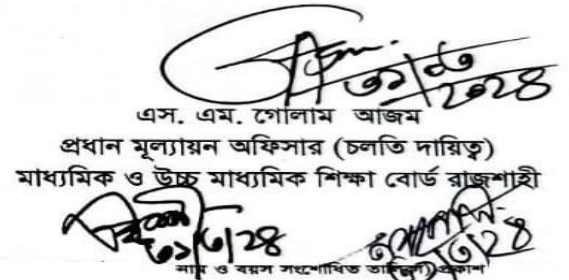 ৩১/০৩
২০২৪
এস. এম. গোলাম আজম
প্রধান মূল্যায়ন অফিসার (চলতি দায়িত্ব)
মাধ্যমিক ও উচ্চ মাধ্যমিক শিক্ষা বোর্ড রাজশাহী
৩১/৩/২৪
/৩/২৪
নাম ও বয়স সংশোধিত